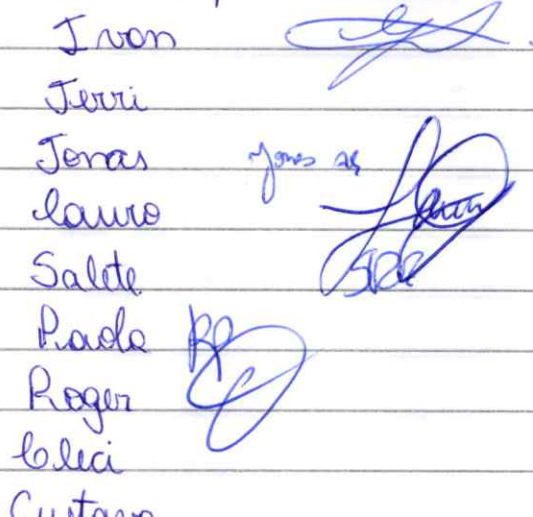 Ivan
Jerri
Jonas Jonas
Lauro Lauro
Salete
Paola
Roger
Cleci
Gustavo